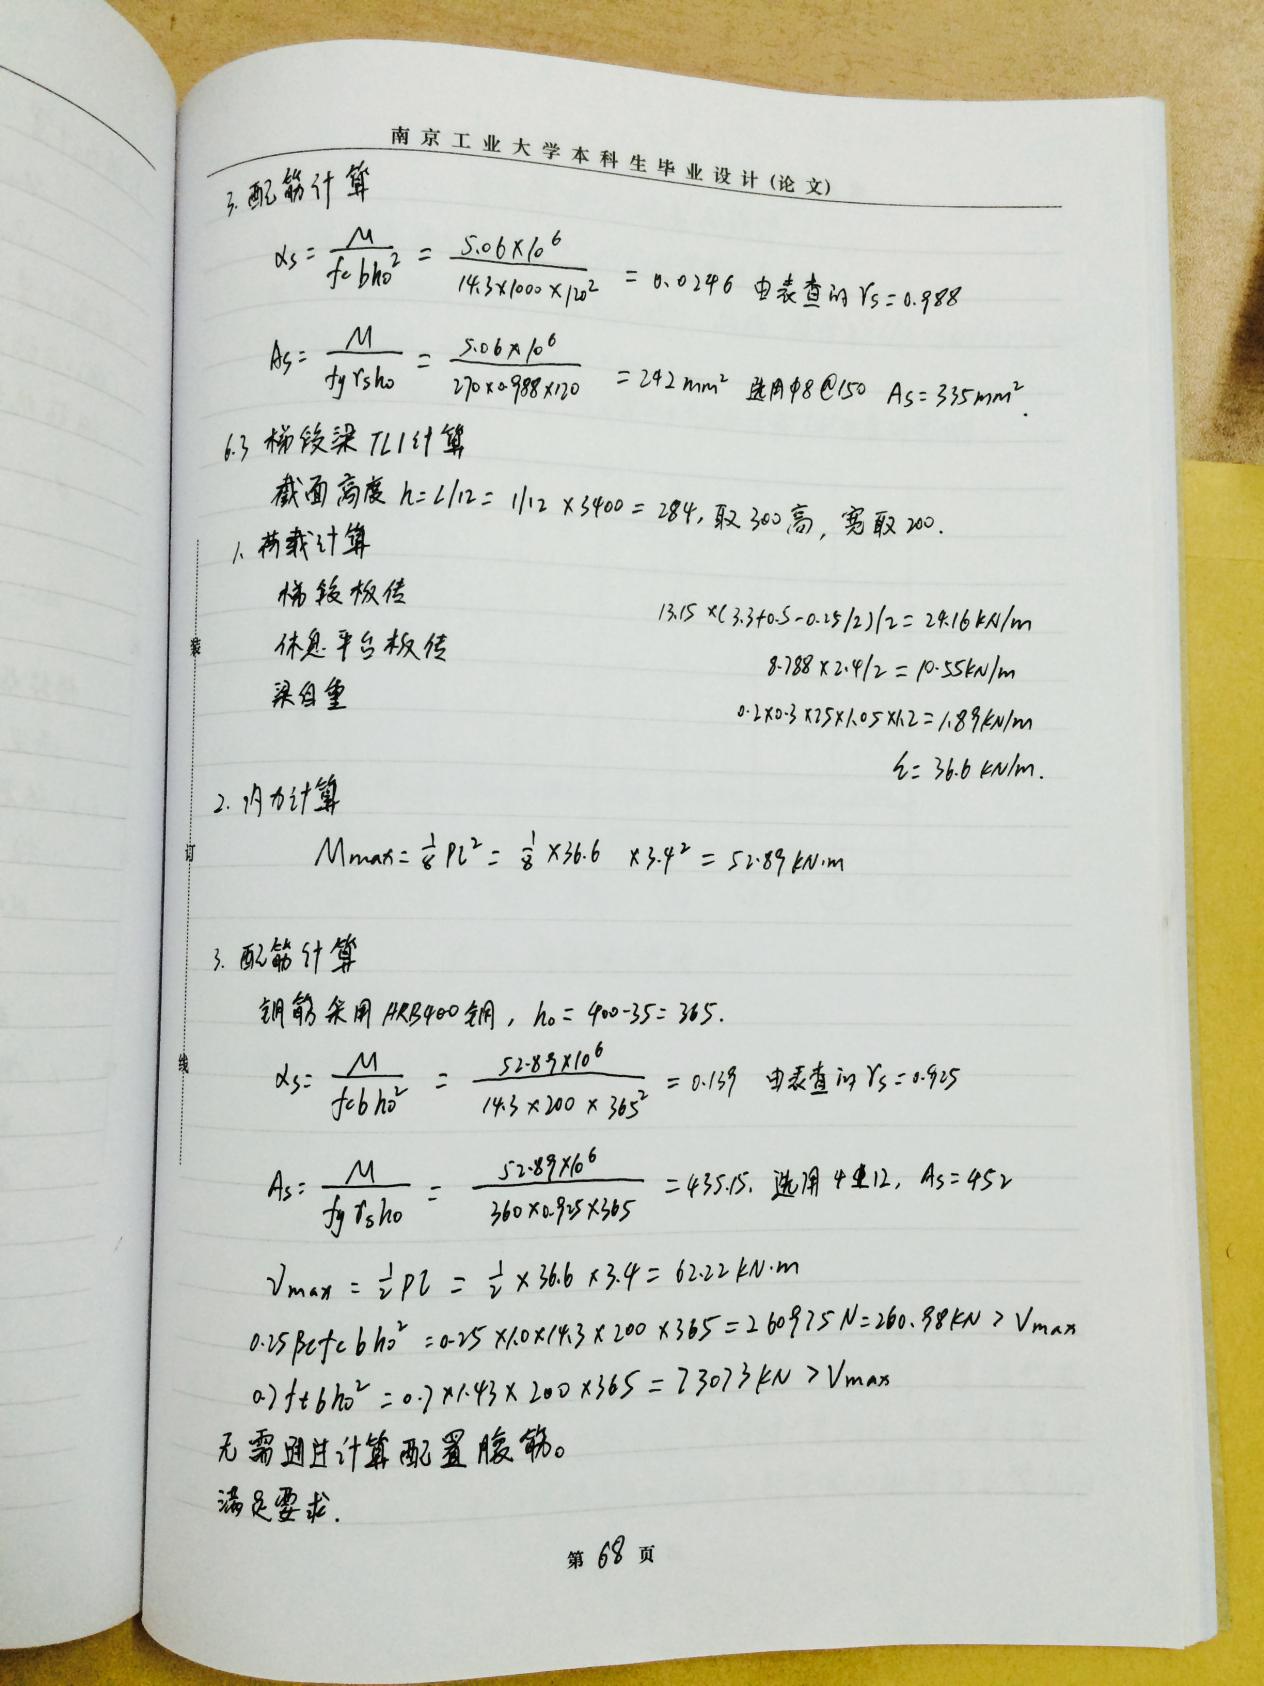 南京工业大学本科生毕业设计(论文)
3. 配筋计算
αs = M / fcbh₀² = 5.06×10⁶ / 14.3×1000×120² = 0.0246 由表查的 γs = 0.988
As = M / fyγsh₀ = 5.06×10⁶ / 270×0.988×120 = 242mm² 选用φ8@150 As = 335mm².
6.3 梯段梁TL1计算
截面高度 h = L/12 = 1/12 ×3400 = 284, 取300高, 宽取200.
1. 荷载计算
梯段板传 13.15×(3.3+0.5-0.25/2)/2 = 24.16kN/m
休息平台板传 8.788×2.4/2 = 10.55kN/m
梁自重 0.2×0.3×25×1.05×1.2 = 1.89kN/m
Σ = 36.6 kN/m.
2. 内力计算
Mmax = 1/8 Pl² = 1/8 ×36.6 ×3.4² = 52.89 kN·m
3. 配筋计算
钢筋采用HRB400钢, h₀ = 400-35 = 365.
αs = M / fcbh₀² = 52.89×10⁶ / 14.3×200×365² = 0.139 由表查的 γs = 0.925
As = M / fyγsh₀ = 52.89×10⁶ / 360×0.925×365 = 435.15. 选用4⌀12, As = 452
Vmax = 1/2 Pl = 1/2 × 36.6 × 3.4 = 62.22 kN·m
0.25βcfcbh₀² = 0.25×1.0×14.3×200×365 = 260975N = 260.98kN > Vmax
0.7ftbh₀² = 0.7×1.43×200×365 = 73073kN > Vmax
无需通过计算配置腹筋。
满足要求.
第 68 页
装
订
线